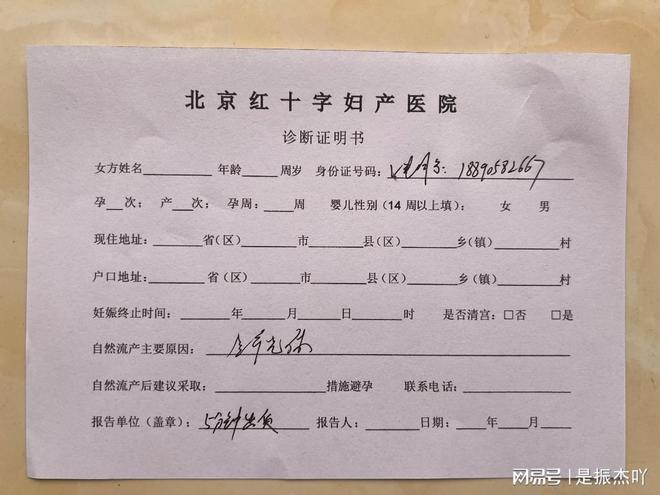 北京红十字妇产医院
诊断证明书
女方姓名________ 年龄____周岁 身份证号码：18890582667
孕__次； 产__次； 孕周：____周 婴儿性别（14周以上填）： 女 男
现住地址：______省（区）______市______县（区）______乡（镇）______村
户口地址：______省（区）______市______县（区）______乡（镇）______村
妊娠终止时间：______年____月____日____时 是否清宫：□否 □是
自然流产主要原因：
自然流产后建议采取：________措施避孕 联系电话：________
报告单位（盖章）：5分钟出质 报告人：____日期：____年____月____
网易号 | 是振杰吖